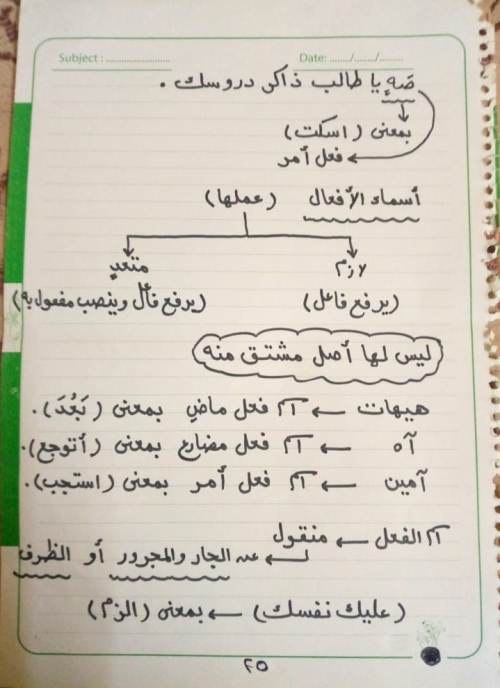 Subject : ........................ Date: ......./......./.........
صَهٍ يا طالب ذاكر دروسك .
بمعنى (اسكت)
فعل أمر
أسماء الأفعال (عملها)
لازم متعدٍ
(يرفع فاعل) (يرفع فاعل وينصب مفعول به)
ليس لها أصل مشتق منه
هيهات ← اسم فعل ماضٍ بمعنى (بَعُدَ).
آه ← اسم فعل مضارع بمعنى (أتوجع).
آمين ← اسم فعل أمر بمعنى (استجب).
اسم الفعل ← منقول
عن الجار والمجرور أو الظرف
(عليك نفسك) ← بمعنى (الزم)
٢٥